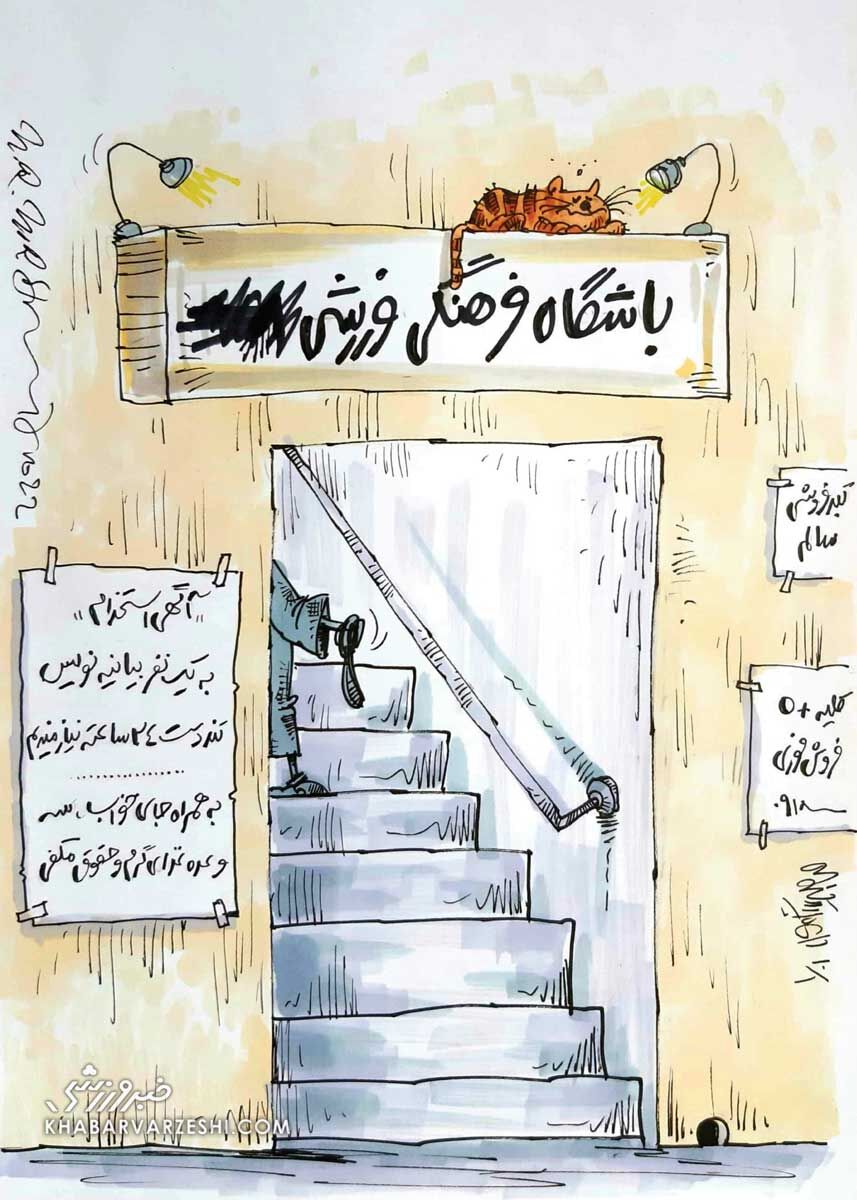 باشگاه فرهنگی ورزشی
„آگهی استخدام„
به یک نفر بیانیه نویس
تند دست ۲۴ ساعته نیازمندیم
....................
به همراه جای خواب، سه
وعده غذای گرم و حقوق مکفی
کبد فروشی
سالم
کلیه +O
فروش فوری
۰۹۱۸
خبرورزشی
KHABARVARZESHI.COM